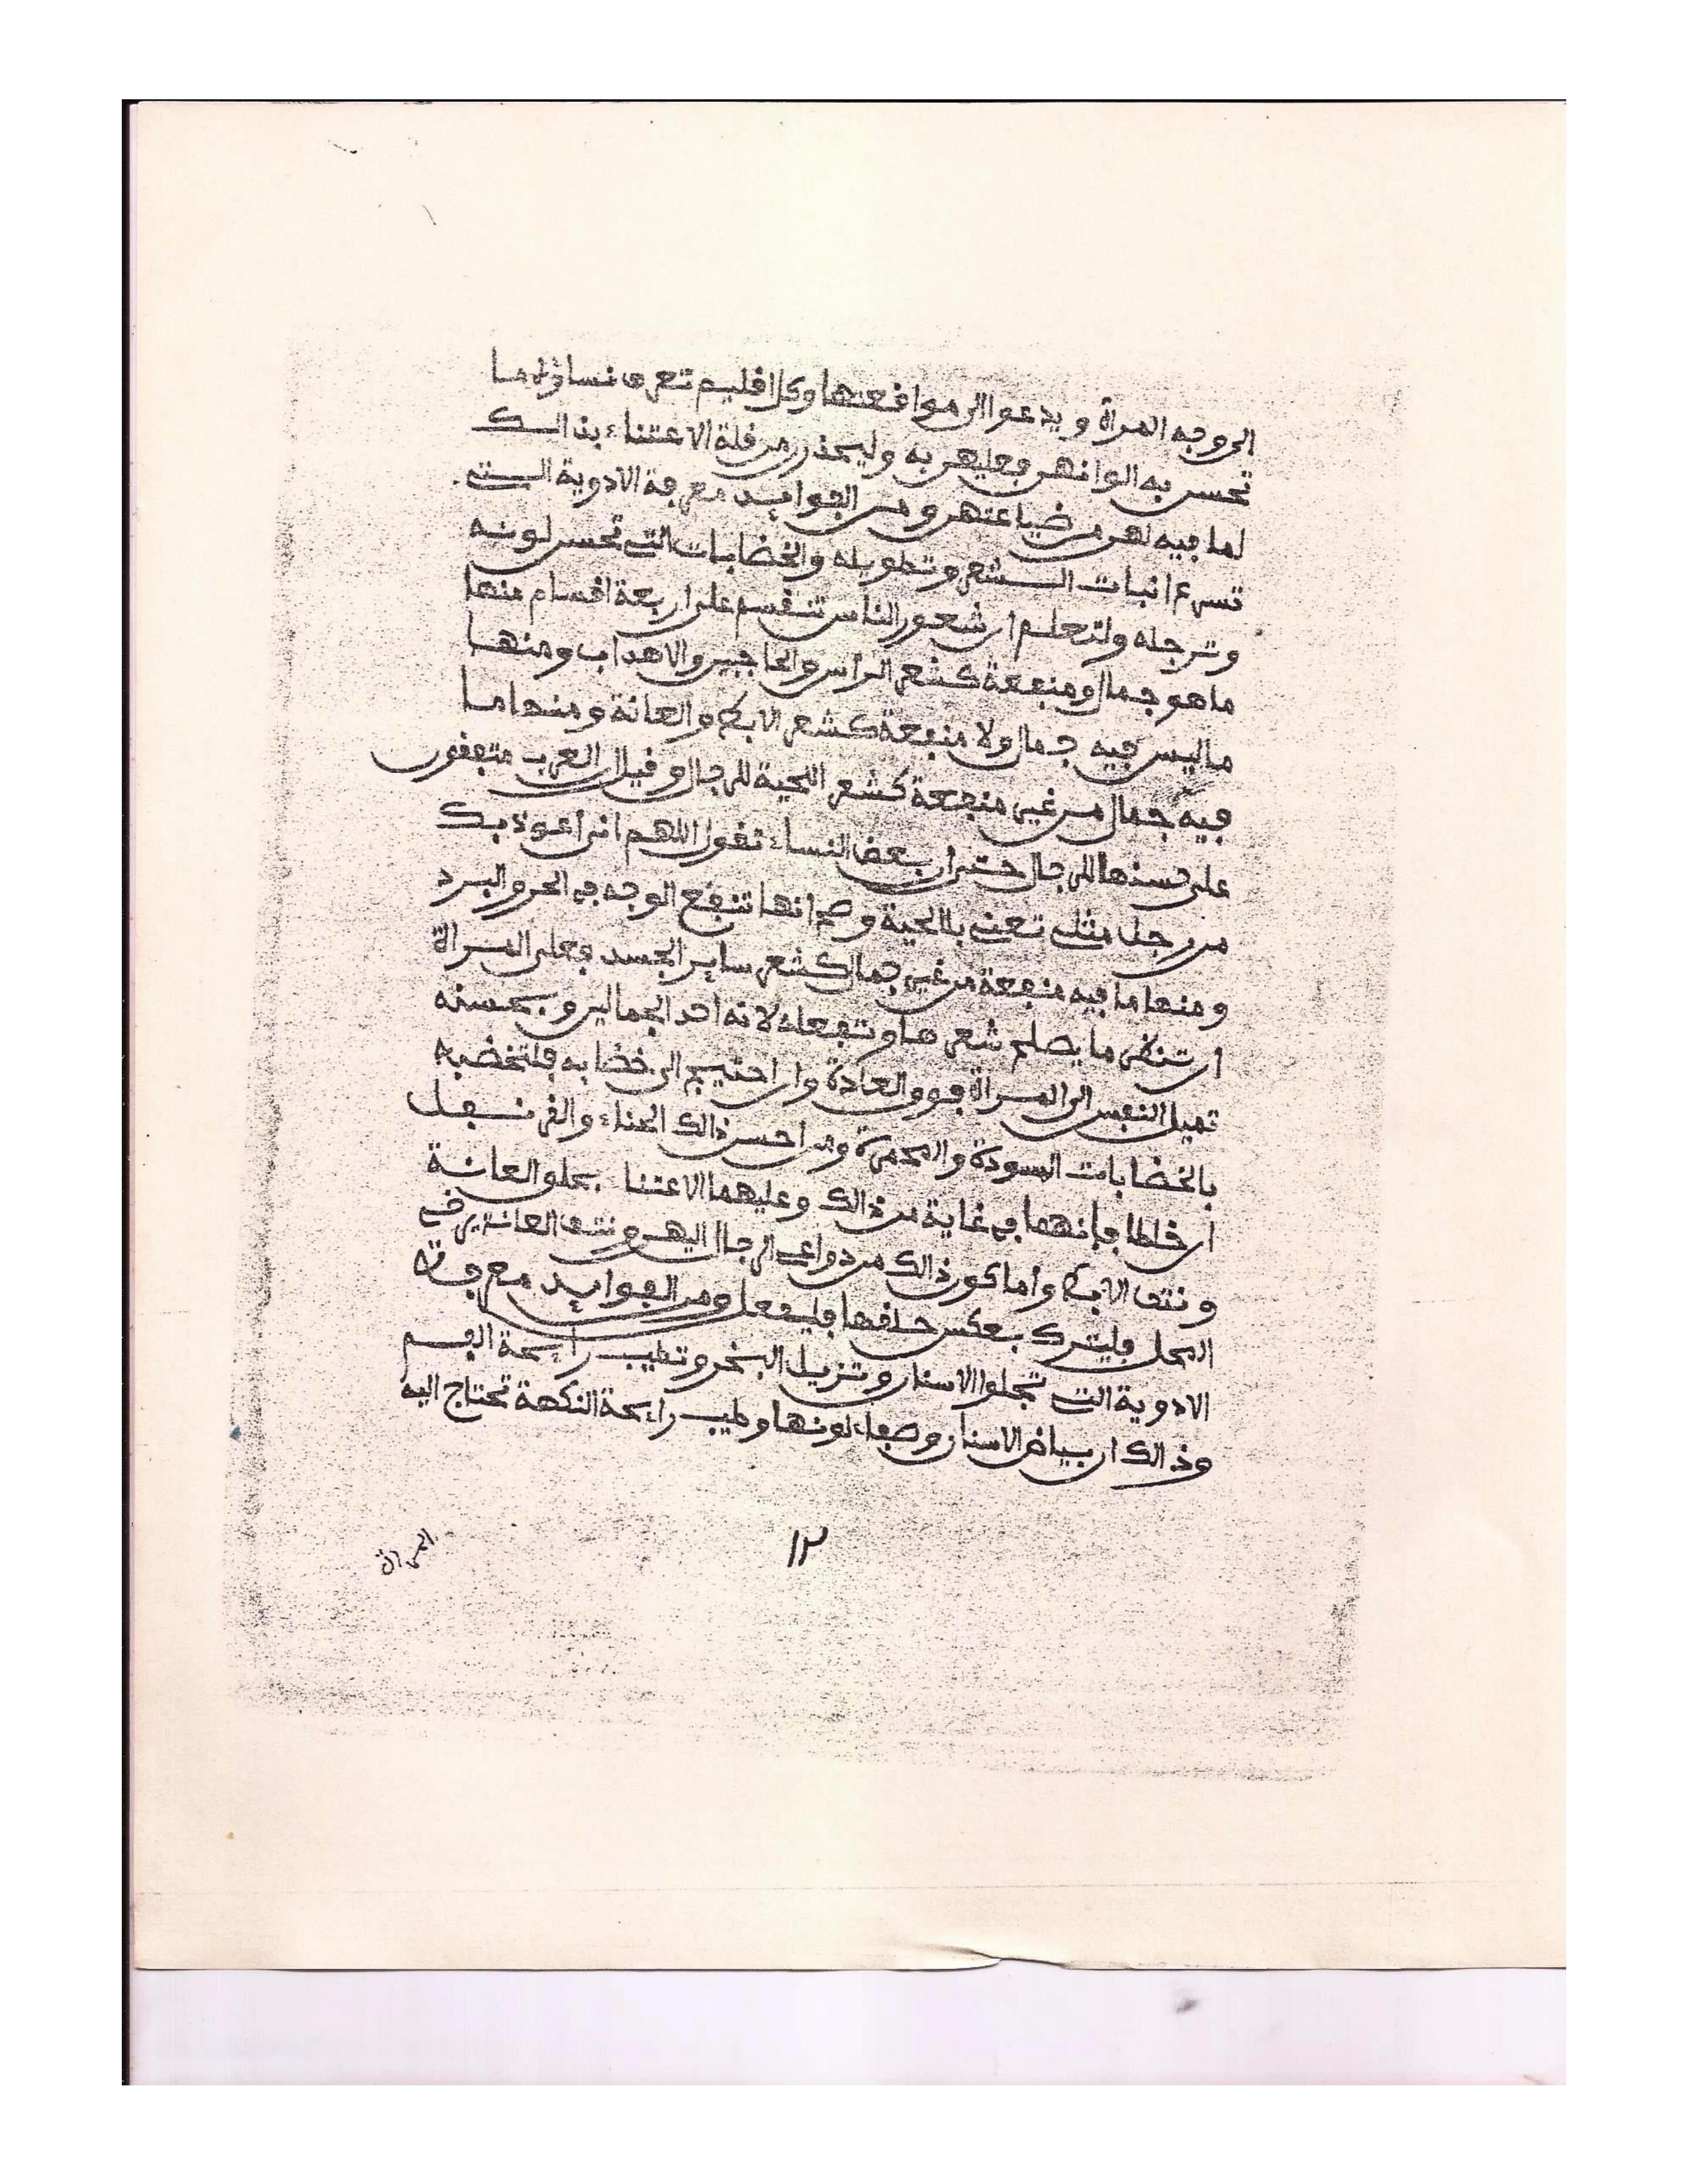 الى وجه المرأة و يدعوا الى موافعتها وكل افليم تعرف نساؤه ما
تحسن به الوانهن فعليهن به وليحذرن من فلة الاعتناء بذالك
لما فيه لهن من ضياعتهن ومن الفوايد معرفة الادوية التي
تسرع انبات الشعر وتطويله والخضابات التي تحسن لونه
وترجله ولتعلم ان شعور الناس تنفسم على اربعة افسام منها
ما هو جمال ومنفعة كشعر الرأس والحاجبين والاهداب ومنها
ما ليس فيه جمال ولا منفعة كشعر الابط والعانة ومنها ما
فيه جمال من غير منفعة كشعر اللحية للرجال وفيل ان العرب متففون
على حسنها للرجال حتى ان بعض النساء تفول اللهم انى اعوذ بك
من رجل مثلى تعنى بالحية وصح انها تنفع الوجه في الحر والبرد
ومنها ما فيه منفعة من غير جمال كشعر ساير الجسد فعلى المرأة
ان تنظر ما يصلح شعرها وتفعله لانه احد الجمالين وبحسنه
تميل النفس الى المرأة فوق العادة وان احتيج الى خضابه فلتخضبه
بالخضابات المسودة والمحمرة ومن احسن ذالك الحناء والفرنفل
ان خلطا فإنهما في غاية من ذالك وعليهما الاعتنا بحلق العانة
ونتف الابط وأما كون ذالك من دواعى الرجال اليهن ونتف العانة يرخي
المحل فليترك بعكس حلفها فليفعل ومن الفوايد معرفة
الادوية التي تجلوا الاسنان وتزيل البخر وتطيب رايحة الفم
وذالك ان بياض الاسنان وصفاء لونها وطيب رايحة النكهة تحتاج اليه
المرأة
١٢